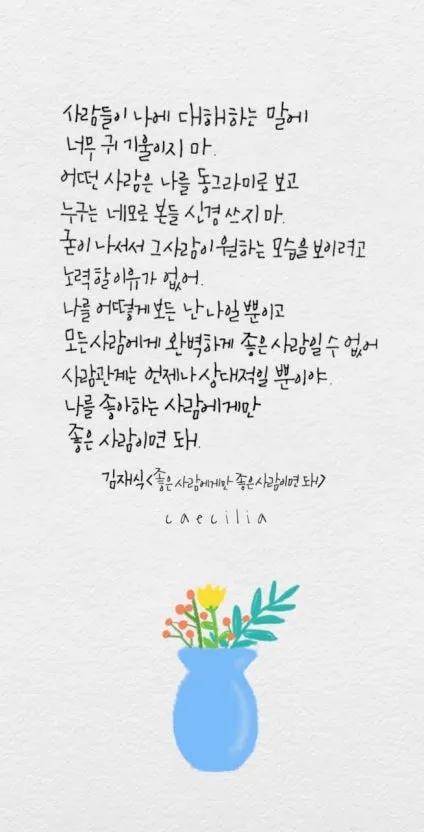 사람들이 나에 대해하는 말에
너무 귀 기울이지 마.
어떤 사람은 나를 동그라미로 보고
누구는 네모로 본들 신경 쓰지 마.
굳이 나서서 그 사람이 원하는 모습을 보이려고
노력할 이유가 없어.
나를 어떻게 보든 난 나일 뿐이고
모든 사람에게 완벽하게 좋은 사람일 수 없어
사람관계는 언제나 상대적일 뿐이야.
나를 좋아하는 사람에게만
좋은 사람이면 돼.
김재식<좋은 사람에게만 좋은 사람이면 돼>
caecilia